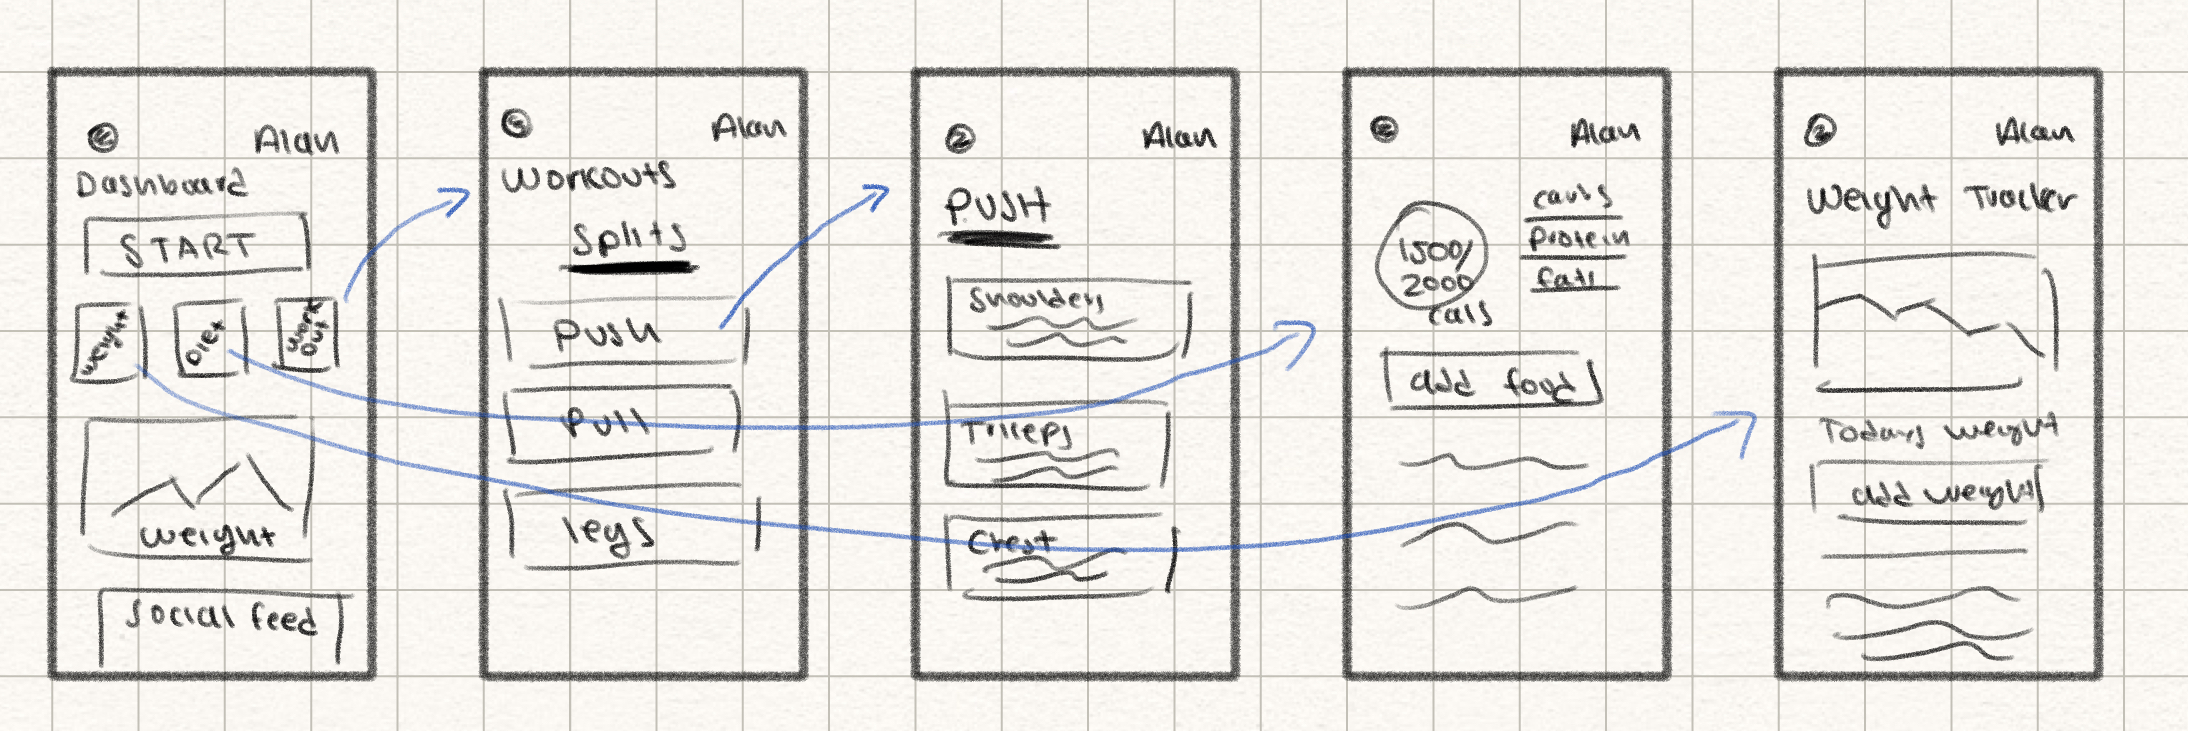 Alan
Dashboard
START
weight
Diet
work
out
weight
social feed
Alan
Workouts
Splits
Push
Pull
legs
Alan
PUSH
Shoulders
Triceps
Chest
Alan
1500/
2000
cals
carbs
Protein
fats
add food
Alan
Weight Tracker
Todays weight
add weight